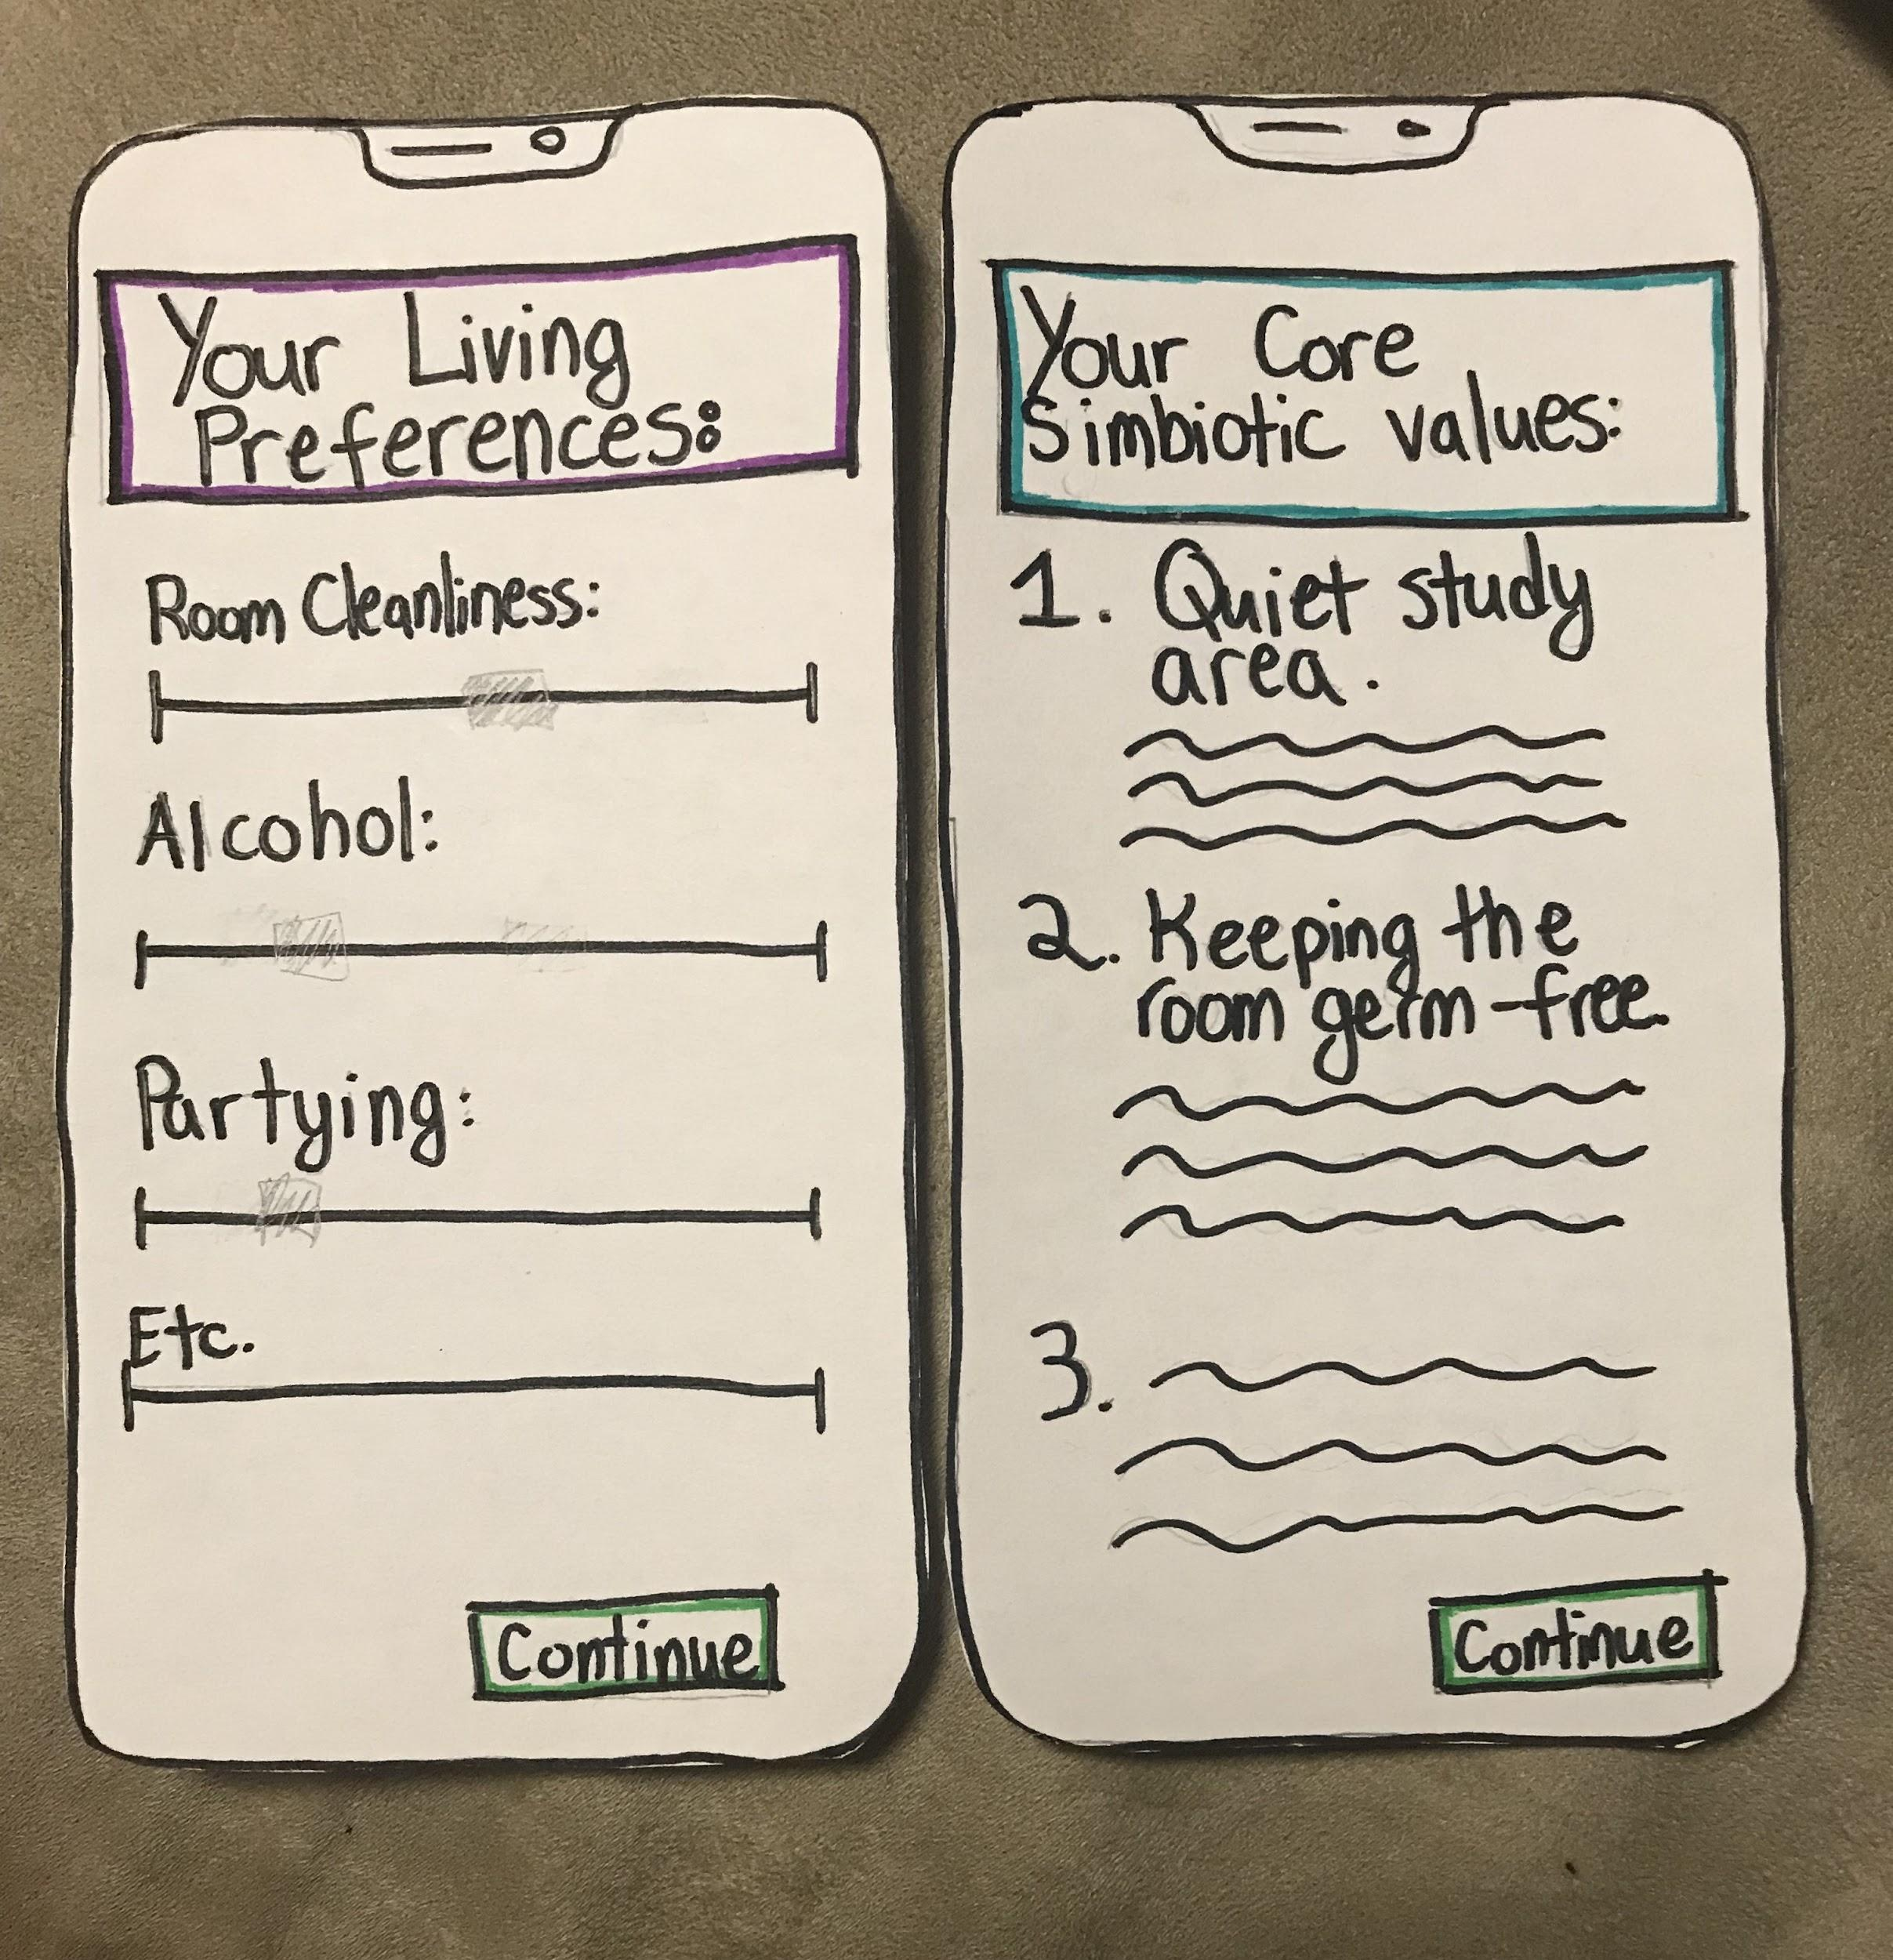 Your Living
Preferences:
Room Cleanliness:
Alcohol:
Partying:
Etc.
Continue
Your Core
Simbiotic values:
1. Quiet study
area.
2. Keeping the
room germ-free.
3.
Continue